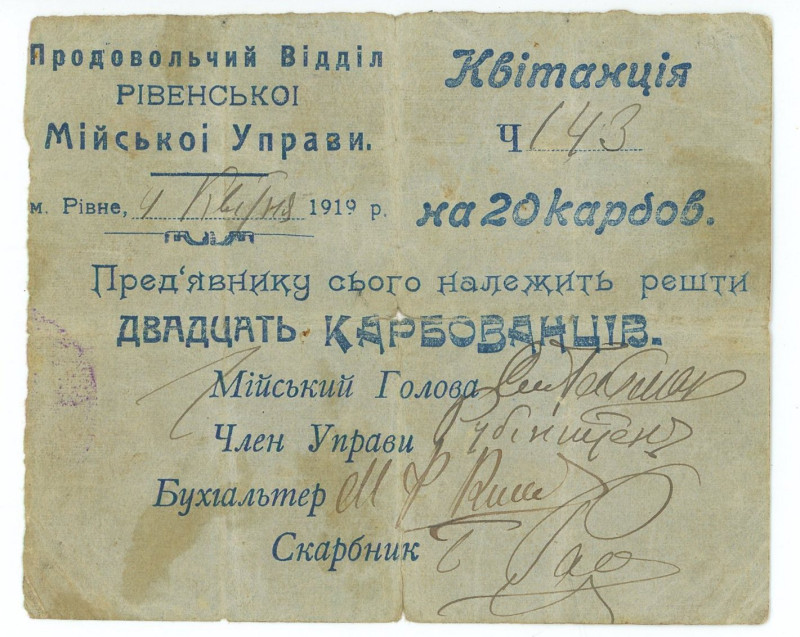 Продовольчий Відділ
РІВЕНСЬКОІ
Мійськоі Управи.
м. Рівне, 4 Квітня 1919 р.
Квітанція
Ч 143
на 20 карбов.
Пред'явнику сього належить решти
ДВАДЦАТЬ КАРБОВАНЦІВ.
Мійський Голова
Член Управи
Бухгальтер
Скарбник